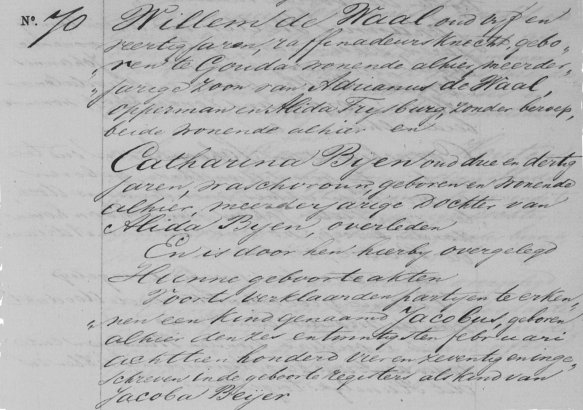 No. 70 Willem de Waal oud vijf en
veertig jaren, raffinadeursknecht, gebo-
ren te Gouda wonende alhier, meerder-
jarige zoon van Adrianus de Waal,
opperman en Alida Trysburg, zonder beroep,
beide wonende alhier en
Catharina Byen oud drie en dertig
jaren, waschvrouw, geboren en wonende
alhier, meerderjarige dochter van
Alida Byen, overleden
En is door hen hierby overgelegd
Hunne geboorteakten
Voorts verklaarden partyen te erken-
nen een kind genaamd Jacobus, geboren
alhier den zes en twintigsten februari
achttien honderd vier en zeventig en inge-
schreven in de geboorte registers als kind van
Jacoba Beijer